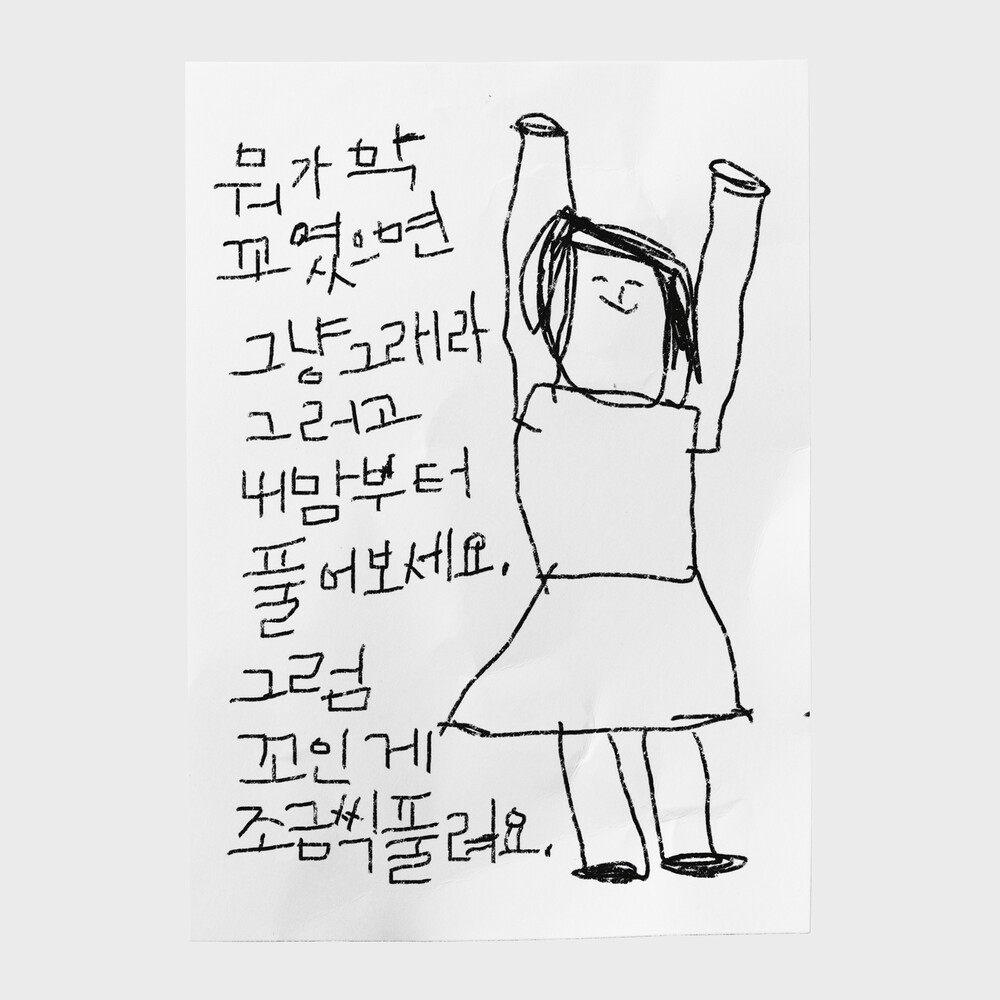 뭐가 막
꼬였으면
그냥 그래라
그러고
내맘부터
풀어보세요.
그럼
꼬인 게
조금씩 풀려요.